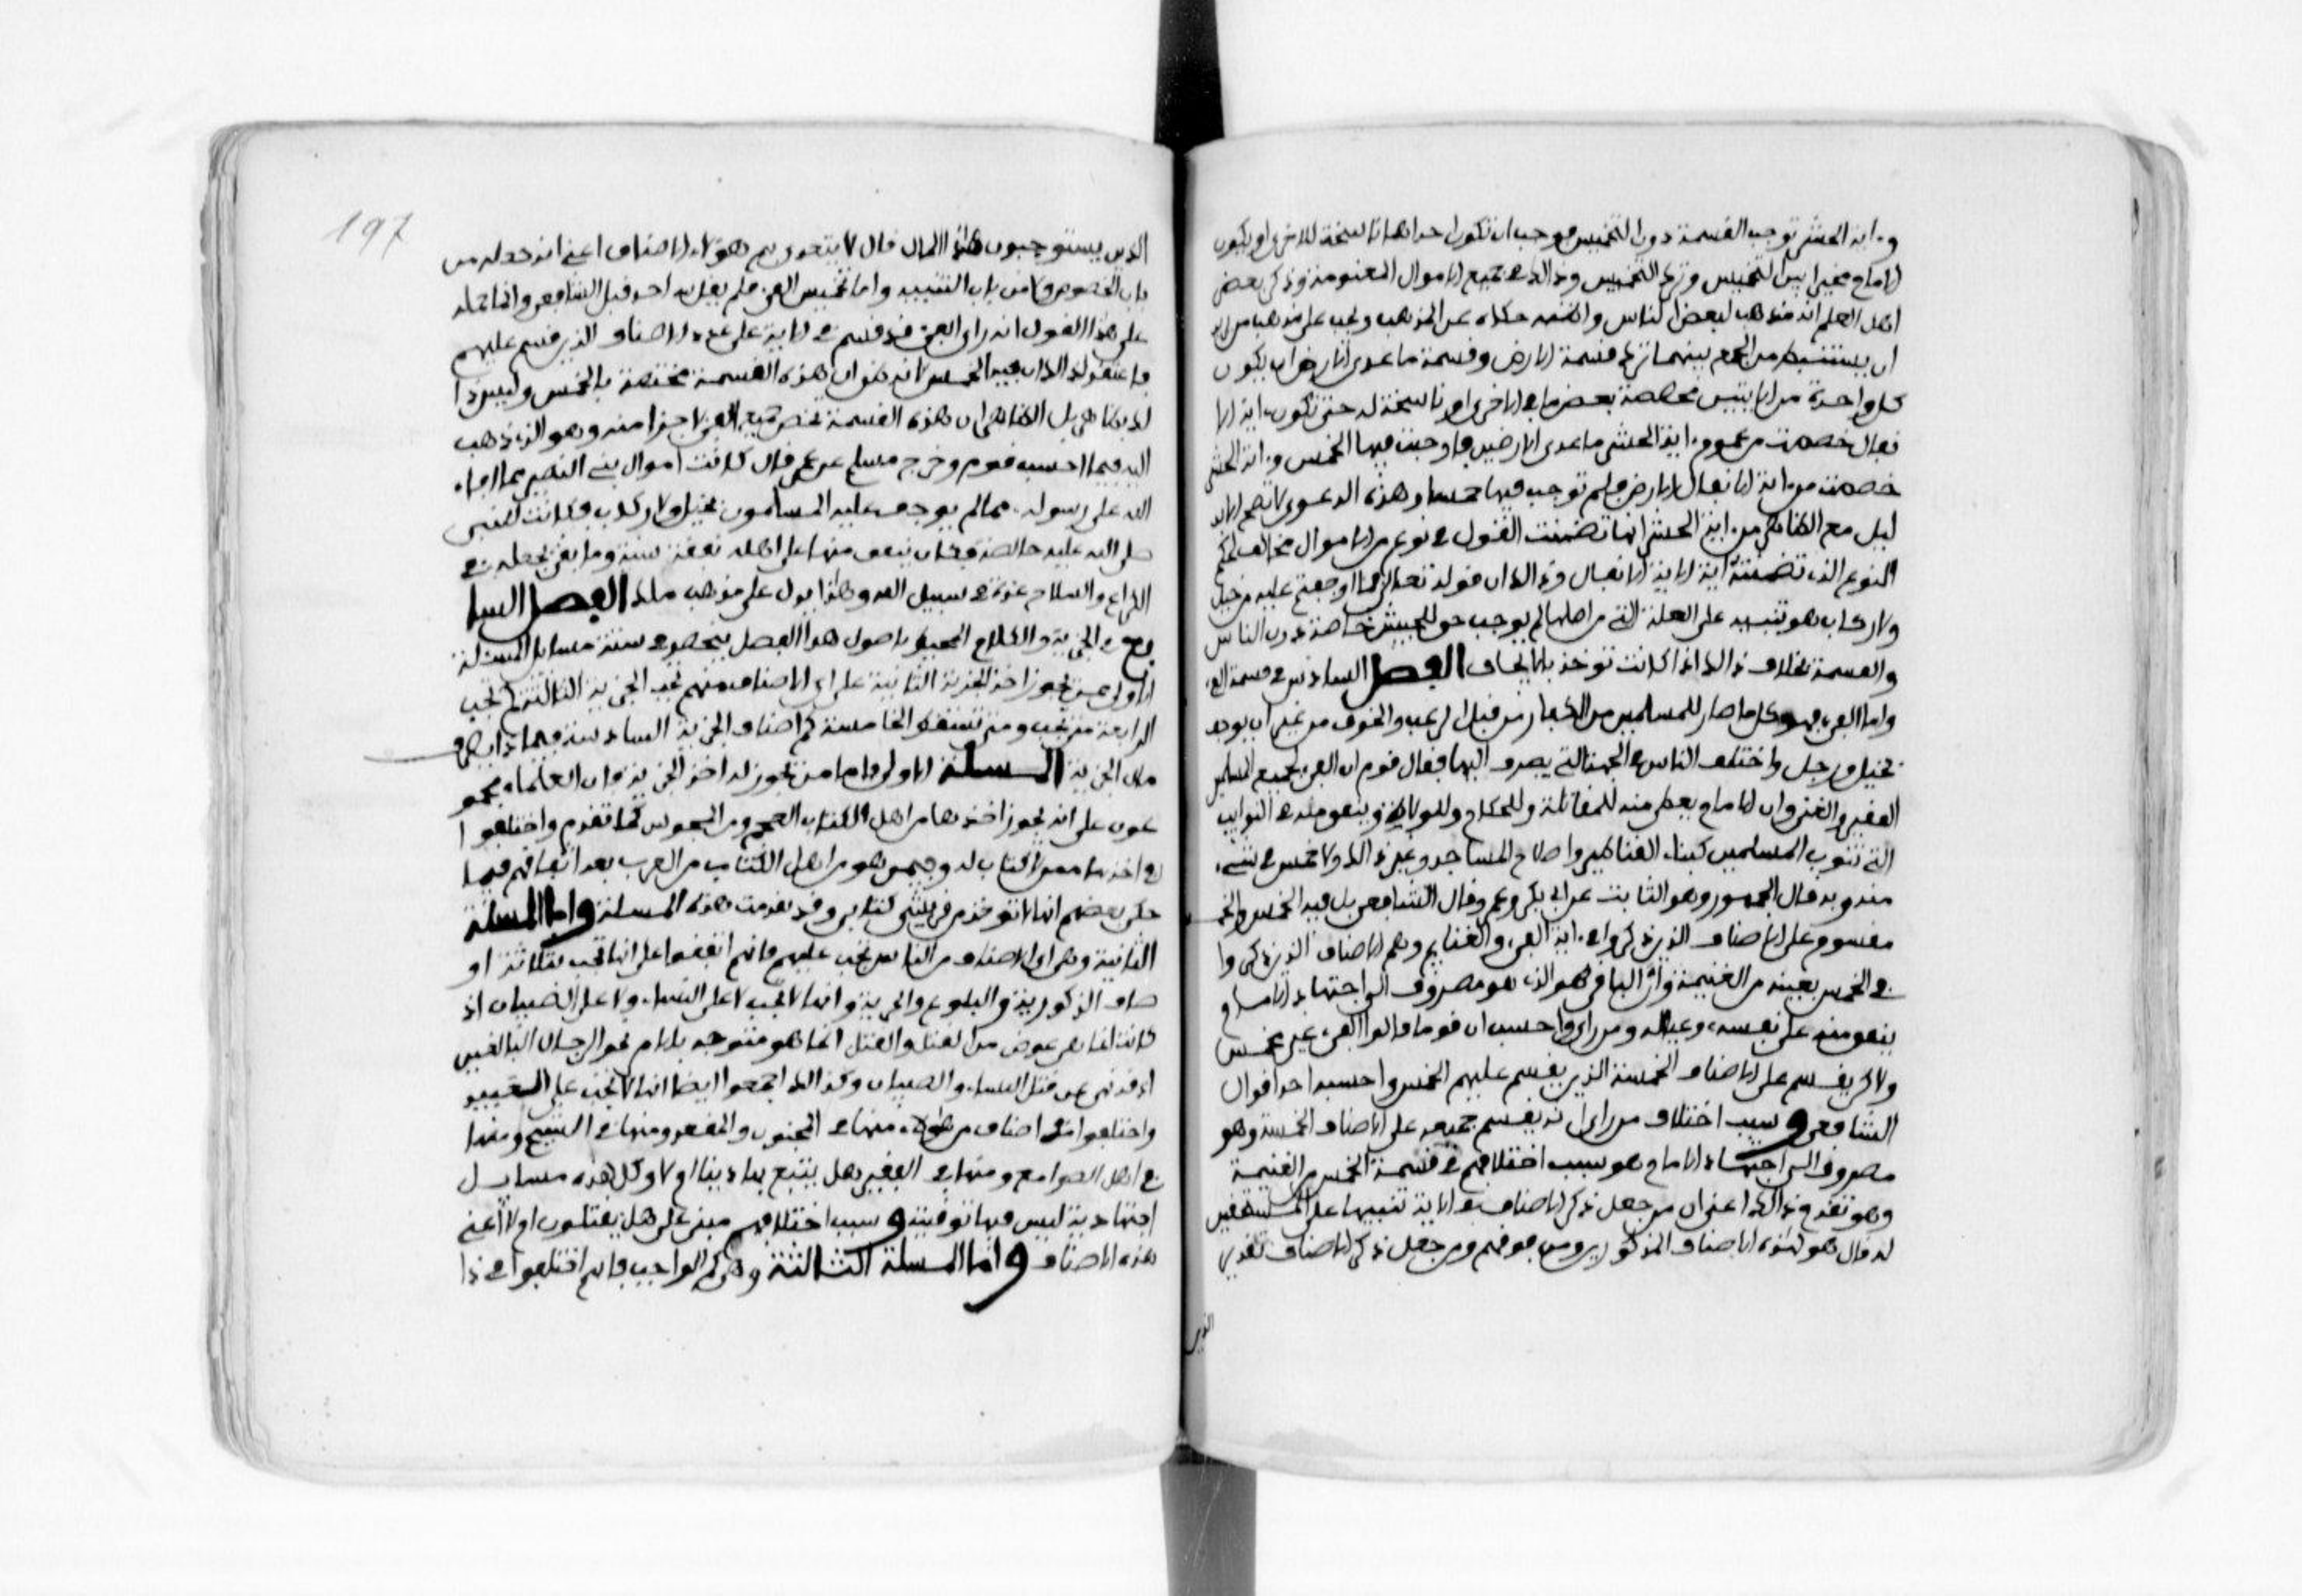 و.اية الحشر توجب القسمة دون التخميس فوجب ان تكون احداهما ناسخة للاخرى او يكون
الامام مخيرا بين التخميس وترك التخميس وذالك في جميع الاموال المغنومة وذكر بعض
اهل العلم انه مذهب لبعض الناس واظنه حكاه عن المذهب ويجب على مذهب من يريد
ان يستنبط من الجمع بينهما ترك قسمة الارض وقسمة ما عدى الارض ان يكون
كل واحدة من الايتين مخصصة بعض ما في الاخرى او ناسخة له حتى تكون اية الا
نفال خصصت من عموم .اية الحشر ما عدى الارضين فاوجبت فيها الخمس و.اية الحشر
خصصت من .اية الانفال الارض فلم توجب فيها خمسا وهذه الدعوى لا تصح الا بد
ليل مع الظاهر من .اية الحشر انها تضمنت القول في نوع من الاموال مخالف الحكم
للنوع الذي تضمنته اية الانفال وذالك ان قوله تعالى فما اوجفتم عليه من خيل
ولا ركاب هو تنبيه على العلة التي من اجلها لم يوجب حق للجيش خاصة دون الناس
والقسمة بخلاف ذالك اذا كانت توخذ بالايجاف الفصل السادس في قسمة الفيء
واما الفيء فهو كل ما صار للمسلمين من الكفار من قبل الرعب والخوف من غير ان يوجف
بخيل ورجل واختلف الناس في الجهة التي يصرف اليها فقال قوم ان الفيء لجميع المسلمين
الفقير والغني وان الامام يعطي منه للمقاتلة وللحكام وللولاة وينفق منه في النوايب
التي تنوب المسلمين كبناء القناطير واصلاح المساجد وغير ذالك ولا خمس في شيء
منه وبه قال الجمهور وهو الثابت عن ابي بكر وعمر وقال الشافعي بل فيه الخمس والخمس
مقسوم على الاصناف الذين ذكروا في .اية الفيء والغنايم وهم الاصناف الذين ذكروا
في الخمس بعينه من الغنيمة وان الباقي هو الذي هو مصروف الى اجتهاد الامام
ينفق منه على نفسه وعياله ومن راى واحسب ان قوما قالوا الفيء غير مخمس
ولاكن يقسم على الاصناف الخمسة الذين يقسم عليهم الخمس واحسبه احد اقوال
الشافعي وسبب اختلاف من راى انه يقسم جميعه على الاصناف الخمسة وهو
مصروف الى اجتهاد الامام هو سبب اختلافهم في قسمة الخمس من الغنيمة
وهو تقدم ذالك اعني ان من جعل ذكر الاصناف في الاية تنبيها على المستحقين
له قال هو لهذه الاصناف المذكورين ومن فوقهم ومن جعل ذكر الاصناف تعديد
الذين
197
الذين يستوجبون هذا المال قال لا يتعدى بهم هؤلاء الاصناف اعني انه جعله من
باب الخصوص لا من باب التنبيه واما تخميس الفيء فلم يقل به احد قبل الشافعي وانما حمله
على هذا القول انه راى الفيء قد قسم في الاية على عدد الاصناف الذين قسم عليهم
فاعتقد لذالك ان فيه الخمس لانه ظن ان هذه القسمة مختصة بالخمس وليس ذا
لك بظاهر بل الظاهر ان هذه القسمة تخص جميع الفيء لا جزا منه وهو الذي ذهب
اليه فيما احسب قوم وخرج مسلم عن عمر قال كانت اموال بني النضير مما افاء
الله على رسوله مما لم يوجف عليه المسلمون بخيل ولا ركاب فكانت للنبي
صلى الله عليه خالصة فكان ينفق منها على اهله نفقة سنة وما بقي يجعله في
الكراع والسلاح عدة في سبيل الله وهذا يدل على مذهب ملك الفصل السا
بع في الجزية والكلام المحيط باصول هذا الفصل ينحصر في ستة مسايل المسئلة
الاولى ممن يجوز اخذ الجزية الثانية على اي الاصناف منهم تجب الجزية الثالثة كم تجب
الرابعة متى تجب ومتى تسقط الخامسة كم اصناف الجزية السادسة فيما ذا يصرف
مال الجزية المسئلة الاولى فاما من يجوز له اخذ الجزية فان العلماء مجمو
عون على انه يجوز اخذها من اهل الكتاب العجم ومن المجوس كما تقدم واختلفوا
في اخذها ممن لا كتاب له وفيمن هو من اهل الكتاب من العرب بعد اتفاقهم فيما
حكى بعضهم انها لا توخذ من قريشي كتابي وقد تقدمت هذه المسئلة واما المسئلة
الثانية وهي اي الاصناف من الناس تجب عليهم فانهم اتفقوا على انها تجب بثلاثة او
صاف الذكورية والبلوغ والحرية وانها لا تجب لا على النساء ولا على الصبيان اذ
كانت انما هي عوض من القتل والقتل انما هو متوجه بالامر نحو الرجال البالغين
اذ قد نهي عن قتل النساء والصبيان وكذالك اجمعوا ايضا انها لا تجب على العبيد
واختلفوا في اصناف من هؤلاء منها في المجنون والمقعد ومنها في الشيخ ومنها
في اهل الصوامع ومنها في الفقير هل يتبع بها دينا ام لا وكل هذه مسايل
اجتهادية ليس فيها توقيت وسبب اختلافهم مبني على هل يقتلون ام لا اعني
هذه الاصناف واما المسئلة الثالثة وهي كم الواجب فانهم اختلفوا في ذا